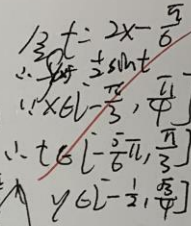 令t=2x-π/6
∴y=1/2 sint
∵x∈[-π/3,π/4]
∴t∈[-5/6π,π/3]
y∈[-1/2,√3/4]